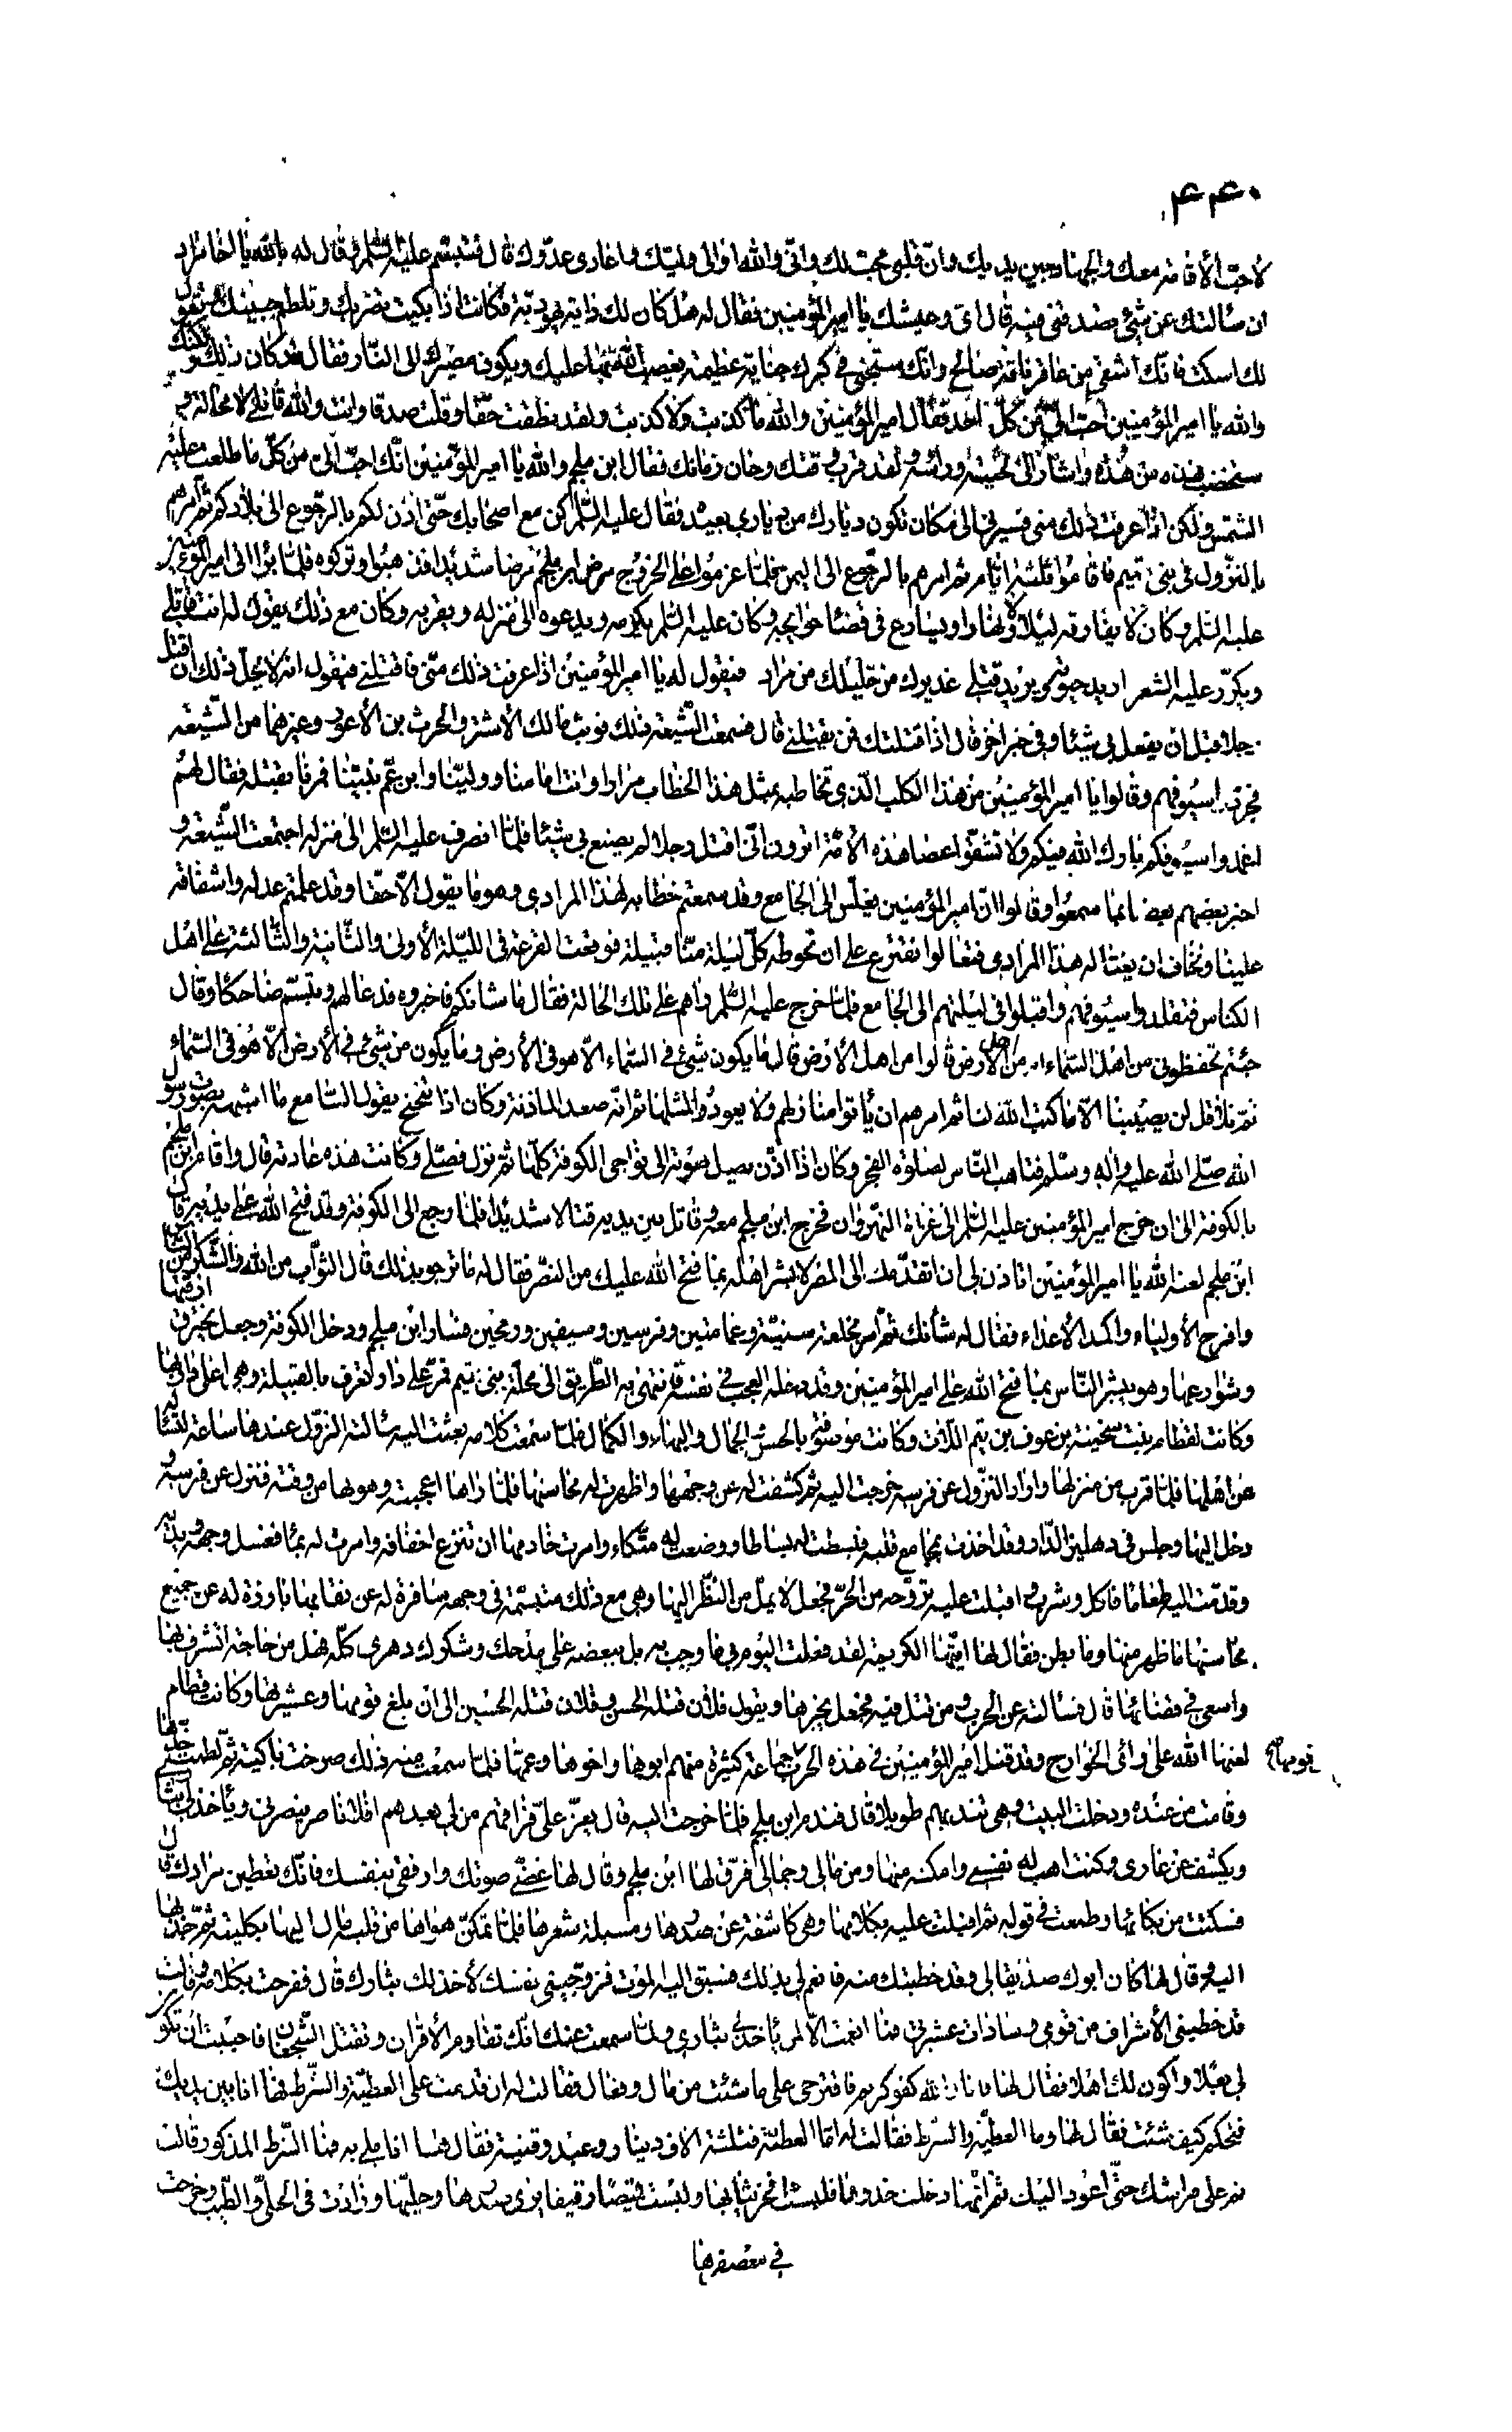 ۴۴۰
لأحب الأقامة معك والجهاد بين يديك وان قلبى محب لك وانى والله اوالى وليك واعادى عدوك قال فتبسم عليه السلم وقال له بالله يا اخا مراد
ان سألتك عن شئ تصدقنى فيه قال اى وعيشك يا امير المؤمنين فقال له هل كان لك داية يهودية فكانت اذا بكيت تضربك وتلطم جبينك وتقول
لك اسكت فانك اشقى من عاقر ناقة صالح وانك ستجنى فى كبرك جناية عظيمة يغضب الله بها عليك ويكون مصيرك الى النار فقال قد كان ذلك ولكنك
والله يا امير المؤمنين احب الى من كل احد فقال امير المؤمنين والله ما كذبت ولا كذبت ولقد نطقت حقا وقلت صدقا وانت والله قاتلى لا محالة و
ستخضب هذه من هذه واشار الى لحيته ورأسه ولقد قرب وقتك وحان زمانك فقال ابن ملجم والله يا امير المؤمنين انك احب الى من كل ما طلعت عليه
الشمس ولكن اذا عرفت ذلك منى فسيرنى الى مكان تكون ديارك من ديارى بعيد فقال عليه السلم كن مع اصحابك حتى اذن لكم بالرجوع الى بلادكم ثم امرهم
بالنزول فى بنى تميم فاقاموا ثلثة ايام ثم امرهم بالرجوع الى اليمن فلما عزموا على الخروج مرض ابن ملجم مرضا شديدا فذهبوا وتركوه فلما برأ اتى امير المؤمنين
عليه السلم وكان لا يفارقه ليلا ولا نهارا ويسارع فى قضاء حوائجه وكان عليه السلم يكرمه ويدعوه الى منزله ويقربه وكان مع ذلك يقول له انت قاتلى
ويكرر عليه الشعر اريد حيوته ويريد قتلى عذيرك من خليلك من مراد فيقول له يا امير المؤمنين اذا عرفت ذلك منى فاقتلنى فيقول انه لا يحل ذلك ان اقتل
رجلا قبل ان يفعل بى شيئا وفى خبر اخر قال اذا قتلتك فمن يقتلنى قال فسمعت الشيعة ذلك فوثب مالك الأشتر والحرث بن الأعور وغيرهما من الشيعة
فجردوا سيوفهم وقالوا يا امير المؤمنين من هذا الكلب الذى تخاطبه بمثل هذا الخطاب مرارا وانت امامنا وولينا وابن عم نبينا فمرنا بقتله فقال لهم
اغمدوا سيوفكم بارك الله فيكم ولا تشقوا عصا هذه الأمة اترون انى اقتل رجلا لم يصنع بى شيئا فلما انصرف عليه السلم الى منزله اجتمعت الشيعة و
اخبر بعضهم بعضا بما سمعوا وقالوا ان امير المؤمنين يغلس الى الجامع وقد سمعتم خطابه لهذا المرادى وهو ما يقول الا حقا وقد علمتم عدله واشفاقه
علينا ونخاف ان يغتاله هذا المرادى فتعالوا نقترع على ان تحوطه كل ليلة منا قبيلة فوقعت القرعة فى الليلة الأولى والثانية والثالثة على اهل
الكناس فتقلدوا سيوفهم واقبلوا فى ليلتهم الى الجامع فلما خرج عليه السلم راهم على تلك الحالة فقال ما شانكم فاخبروه فدعا لهم وتبسم ضاحكا وقال
جئتم تحفظونى من اهل السماء ام من اهل الأرض قالوا من اهل الأرض قال ما يكون شئ فى السماء الا هو فى الأرض وما يكون من شئ فى الأرض الا هو فى السماء
ثم تلا قل لن يصيبنا الا ما كتب الله لنا ثم امرهم ان يأتوا منازلهم ولا يعودوا لمثلها ثم انه صعد المأذنة وكان اذا تنحنح يقول السامع ما اشبهه بصوت رسول
الله صلى الله عليه واله وسلم فتاهب الناس لصلوة الفجر وكان اذا اذن يصل صوته الى نواحى الكوفة كلها ثم نزل فصلى وكانت هذه عادته قال واقام ابن ملجم
بالكوفة الى ان خرج امير المؤمنين عليه السلم الى غزاة النهروان فخرج ابن ملجم معه وقاتل بين يديه قتالا شديدا فلما رجع الى الكوفة وقد فتح الله على يديه قال
ابن ملجم لعنه الله يا امير المؤمنين اتاذن لى ان اتقدمك الى المصر لابشر اهله بما فتح الله عليك من النصر فقال له ما ترجو بذلك قال الثواب من الله والشكر من الناس
وافرح الأولياء واكمد الأعداء فقال له شأنك ثم امر له بخلعة سنية وعمامتين وفرسين وسيفين ورمحين فسار ابن ملجم ودخل الكوفة وجعل يخترق ازقتها
وشوارعها وهو يبشر الناس بما فتح الله على امير المؤمنين وقد دخله العجب فى نفسه فانتهى به الطريق الى محلة بنى تميم فمر على دار تعرف بالقبيلة وهى اعلى دار بها
وكانت لقطام بنت سخينة بن عوف بن تيم اللات وكانت موصوفة بالحسن والجمال والبهاء والكمال فلما سمعت كلامه بعثت اليه وسألته النزول عندها ساعة لتسأله
عن اهلها فلما قرب من منزلها واراد النزول عن فرسه خرجت اليه ثم كشفت له عن وجهها واظهرت له محاسنها فلما راها اعجبته وهواها من وقته فنزل عن فرسه و
دخل اليها وجلس فى دهليز الدار وقد اخذت بمجامع قلبه فبسطت له بساطا ووضعت له متكاء وامرت خادمها ان تنزع اخفافه وامرت له بماء فغسل وجهه ويديه
وقدمت اليه طعاما فاكل وشرب واقبلت عليه تروحه من الحر فجعل لا يمل من النظر اليها وهى مع ذلك متبسمة فى وجهه سافرة له عن نقابها بارزة له عن جميع
محاسنها ما ظهر منها وما بطن فقال لها ايتها الكريمة لقد فعلت اليوم بى ما وجب به بل ببعضه على مدحك وشكرك دهرى كله فهل من حاجة اتشرف بها
واسعى فى قضائها قال فسألته عن الحرب ومن قتل فيه فجعل يخبرها ويقول فلان قتله الحسن وفلان قتله الحسين الى ان بلغ قومها وعشيرتها وكانت قطام
لعنها الله على رأى الخوارج وقد قتل امير المؤمنين فى هذه الحرب من قومها جماعة كثيرة منهم ابوها واخوها وعمها فلما سمعت منه ذلك صرخت باكية ثم لطمت خدها
وقامت من عنده ودخلت البيت وهى تندبهم طويلا قال فندم ابن ملجم فلما خرجت اليه قال يعز على فراقهم من لى بعدهم افلا ناصر ينصرنى ويأخذ لى بثارى
ويكشف عن عارى فكنت اهب له نفسى وامكنه منها ومن مالى وجمالى فرق لها ابن ملجم وقال لها غضى صوتك وارفقى بنفسك فانك تعطين مرادك قال
فسكتت من بكائها وطمعت فى قوله ثم اقبلت عليه بكلامها وهى كاشفة عن صدرها ومسبلة شعرها فلما تمكن هواها من قلبه مال اليها بكليته ثم جذبها
اليه وقال لها كان ابوك صديقا لى وقد خطبتك منه فانعم لى بذلك فسبق اليه الموت فزوجينى نفسك لأخذ لك بثارك قال ففرحت بكلامه وقالت
قد خطبنى الأشراف من قومى وسادات عشيرتى فما انعمت الا لمن يأخذ لى بثارى ولما سمعت عنك انك تقاوم الأقران وتقتل الشجعان فاحببت ان تكون
لى بعلا واكون لك اهلا فقال لها فانا والله كفو كريم فاقترحى على ما شئت من مال وفعال فقالت له ان قدمت على العطية والشرط فها انا بين يديك
فتحكم كيف شئت فقال لها وما العطية والشرط فقالت له اما العطية فثلثة الاف دينار وعبد وقينة فقال هذا انا ملى به فما الشرط المذكور قالت
نم على فراشك حتى اعود اليك ثم انها دخلت خدرها فلبست افخر ثيابها ولبست قميصا رقيقا يرى صدرها وحليها وزادت فى الحلى والطيب وخرجت
فى معصفرها